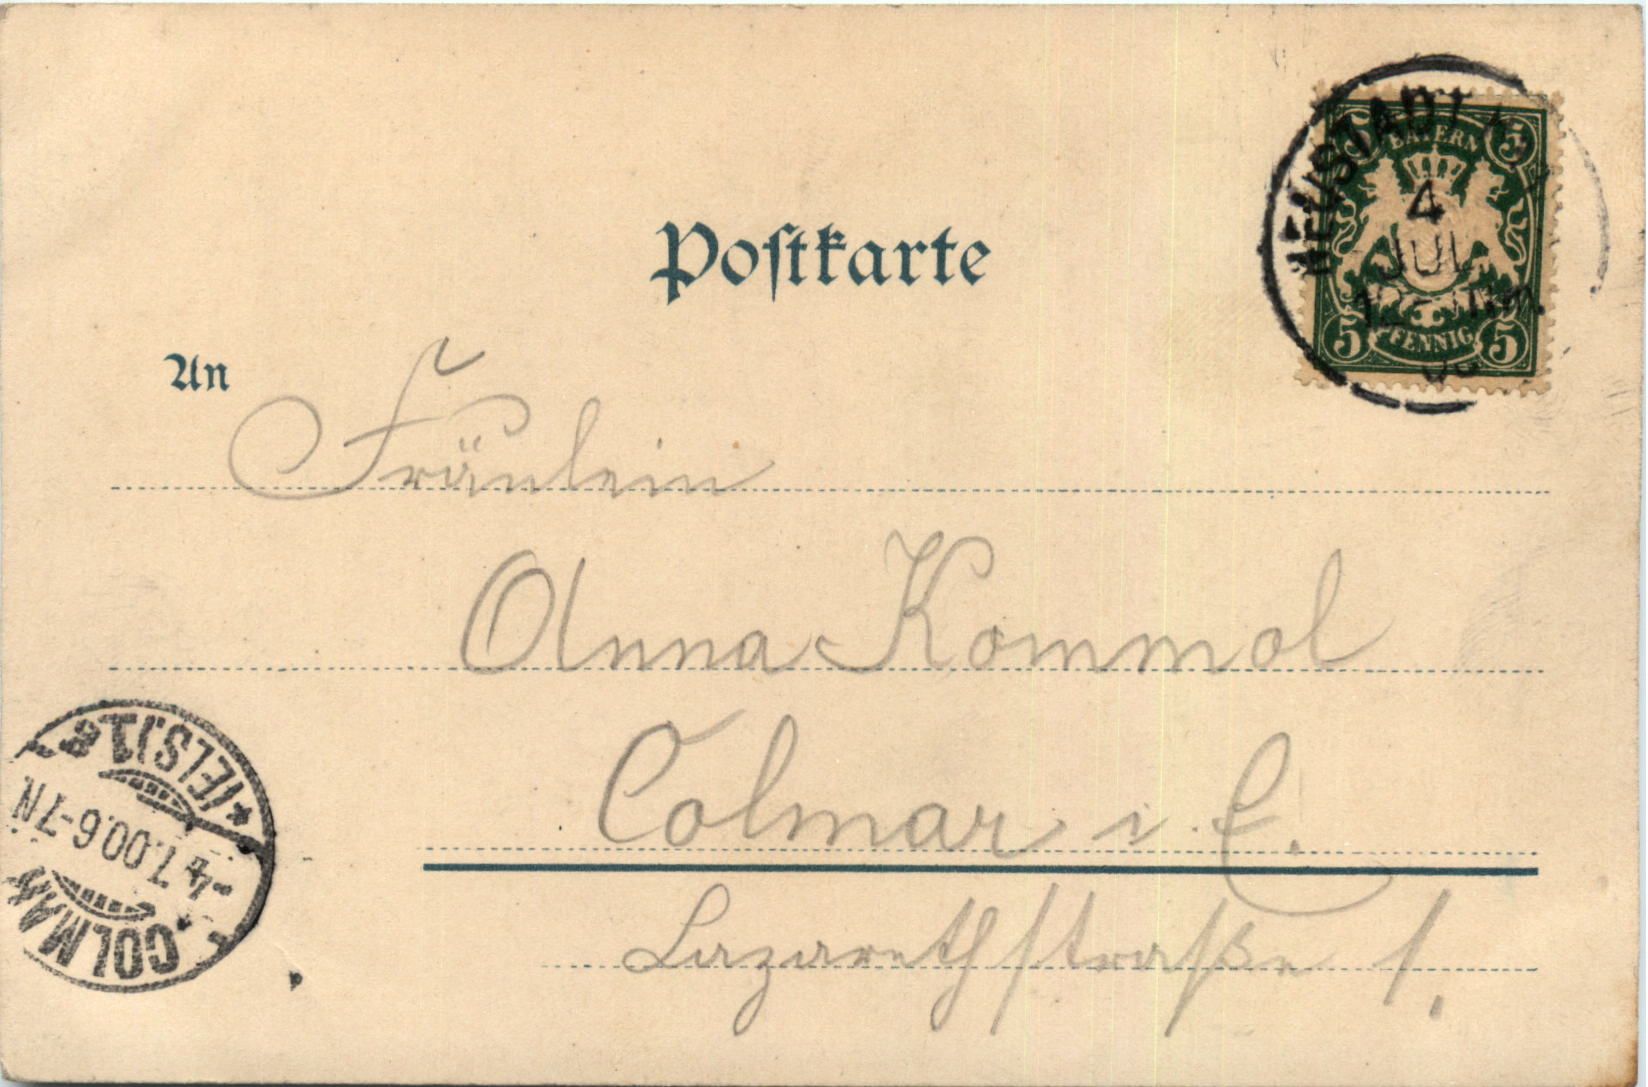 Postkarte
NEUSTADT
BAYERN
5 5
4
JUL
5 PFENNIG 5
An
Fräulein
Anna Kommol
Colmar i. E.
Lazarethstraße 1.
COLMAR
-4.7.00.6-7N
* (ELS.) 1 a